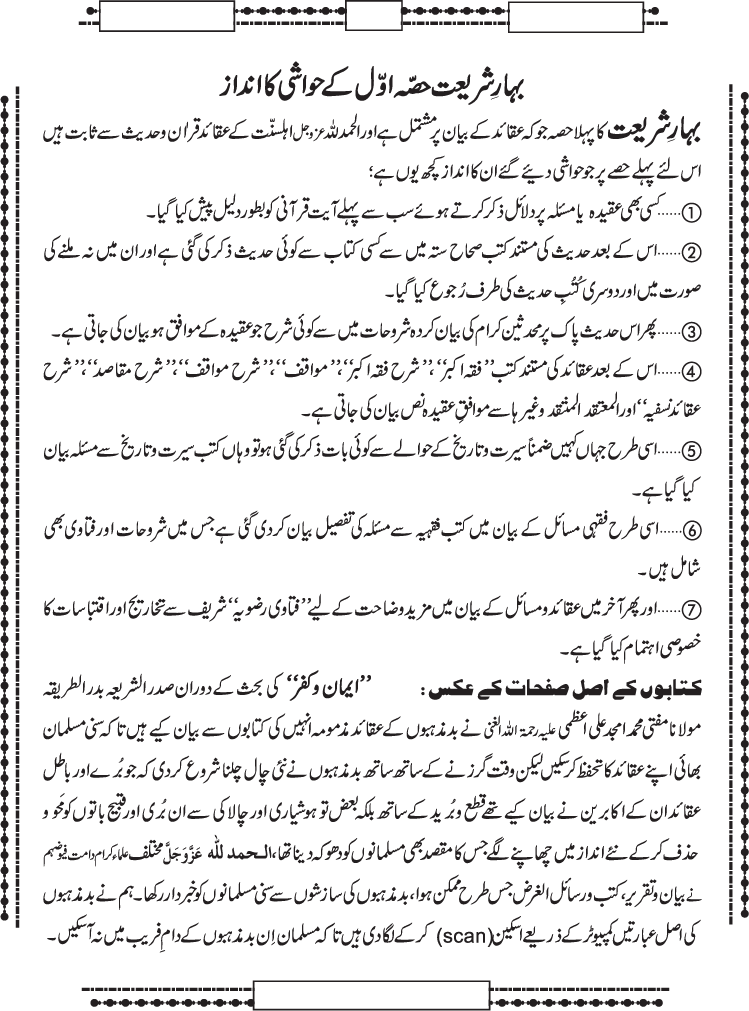 بہارِ شریعت حصّہ اوّل کے حواشی کا انداز
بہارِ شریعت کا پہلا حصہ جو کہ عقائد کے بیان پر مشتمل ہے اور الحمد للہ عزوجل اہلسنّت کے عقائد قرآن وحدیث سے ثابت ہیں
اس لئے پہلے حصے پر جو حواشی دیئے گئے ان کا انداز کچھ یوں ہے؛
①……کسی بھی عقیدہ یا مسئلہ پر دلائل ذکر کرتے ہوئے سب سے پہلے آیت قرآنی کو بطور دلیل پیش کیا گیا۔
②……اس کے بعد حدیث کی مستند کتب صحاح ستہ میں سے کسی کتاب سے کوئی حدیث ذکر کی گئی ہے اور ان میں نہ ملنے کی
صورت میں اور دوسری کُتُبِ حدیث کی طرف رُجوع کیا گیا۔
③……پھر اس حدیث پاک پر محدثین کرام کی بیان کردہ شروحات میں سے کوئی شرح جو عقیدہ کے موافق ہو بیان کی جاتی ہے۔
④……اس کے بعد عقائد کی مستند کتب ’’فقہ اکبر‘‘، ’’شرح فقہ اکبر‘‘، ’’مواقف‘‘، ’’شرح مواقف‘‘، ’’شرح مقاصد‘‘، ’’شرح
عقائد نسفیہ‘‘ اور المعتقد المنتقد وغیرہا سے موافقِ عقیدہ نص بیان کی جاتی ہے۔
⑤……اسی طرح جہاں کہیں ضمناً سیرت وتاریخ کے حوالے سے کوئی بات ذکر کی گئی ہو تو وہاں کتب سیرت وتاریخ سے مسئلہ بیان
کیا گیا ہے۔
⑥……اسی طرح فقہی مسائل کے بیان میں کتب فقہیہ سے مسئلہ کی تفصیل بیان کردی گئی ہے جس میں شروحات اور فتاوی بھی
شامل ہیں۔
⑦……اور پھر آخر میں عقائد و مسائل کے بیان میں مزید وضاحت کے لیے ’’فتاوی رضویہ‘‘ شریف سے تخاریج اور اقتباسات کا
خصوصی اہتمام کیا گیا ہے۔
کتابوں کے اصل صفحات کے عکس : ’’ایمان و کفر‘‘ کی بحث کے دوران صدر الشریعہ بدر الطریقہ
مولانا مفتی محمد امجد علی اعظمی علیہ رحمۃ اللہ الغنی نے بدمذہبوں کے عقائد مذمومہ انہیں کی کتابوں سے بیان کیے ہیں تاکہ سنی مسلمان
بھائی اپنے عقائد کا تحفظ کرسکیں لیکن وقت گزرنے کے ساتھ ساتھ بدمذہبوں نے نئی چال چلنا شروع کردی کہ جو بُرے اور باطل
عقائد ان کے اکابرین نے بیان کیے تھے قطع و بُرید کے ساتھ بلکہ بعض تو ہوشیاری اور چالاکی سے ان بُری اور قبیح باتوں کو مَحْو و
حذف کرکے نئے انداز میں چھاپنے لگے جس کا مقصد بھی مسلمانوں کو دھوکہ دینا تھا، الحمد للہ عَزَّوَجَلَّ مختلف علماء کرام دامت فیوضہم
نے بیان و تقریر، کتب و رسائل الغرض جس طرح ممکن ہوا، بدمذہبوں کی سازشوں سے سنی مسلمانوں کو خبردار رکھا۔ ہم نے بدمذہبوں
کی اصل عبارتیں کمپیوٹر کے ذریعے اسکین (scan) کرکے لگادی ہیں تاکہ مسلمان اِن بدمذہبوں کے دامِ فریب میں نہ آسکیں۔